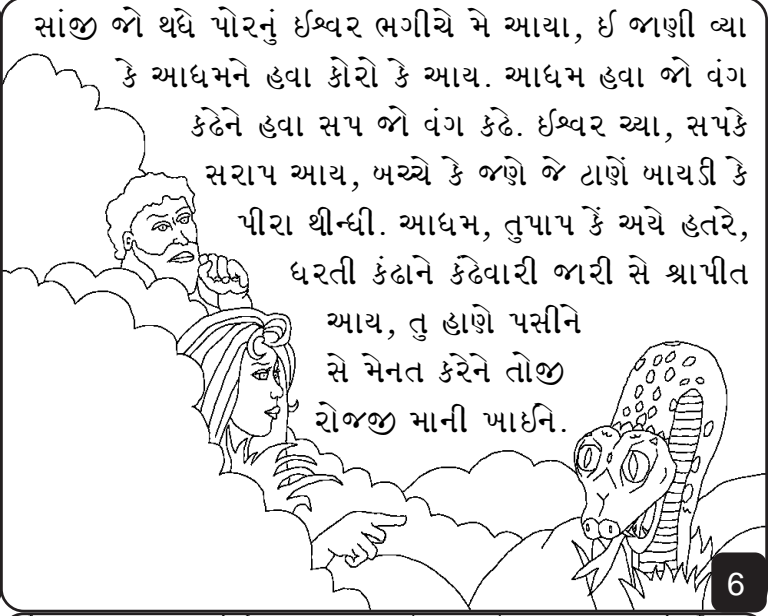 સાંજી જો થધે પોરનું ઈશ્વર ભગીચે મે આયા, ઈ જાણી વ્યા
કે આધમને હવા કોરો કે આય. આધમ હવા જો વંગ
કઢેને હવા સપ જો વંગ કંઢે. ઈશ્વર ચ્યા, સપકે
સરાપ આય, બચ્ચે કે જણે જે ટાણેં બાયડી કે
પીરા થીન્ધી. આધમ, તુપાપ કેં અયે હતરે,
ધરતી કંઢાને કંઢેવારી જારી સે શ્રાપીત
આય, તુ હાણે પસીને
સે મેનત કરેને તોજી
રોજજી માની ખાઈને.
6